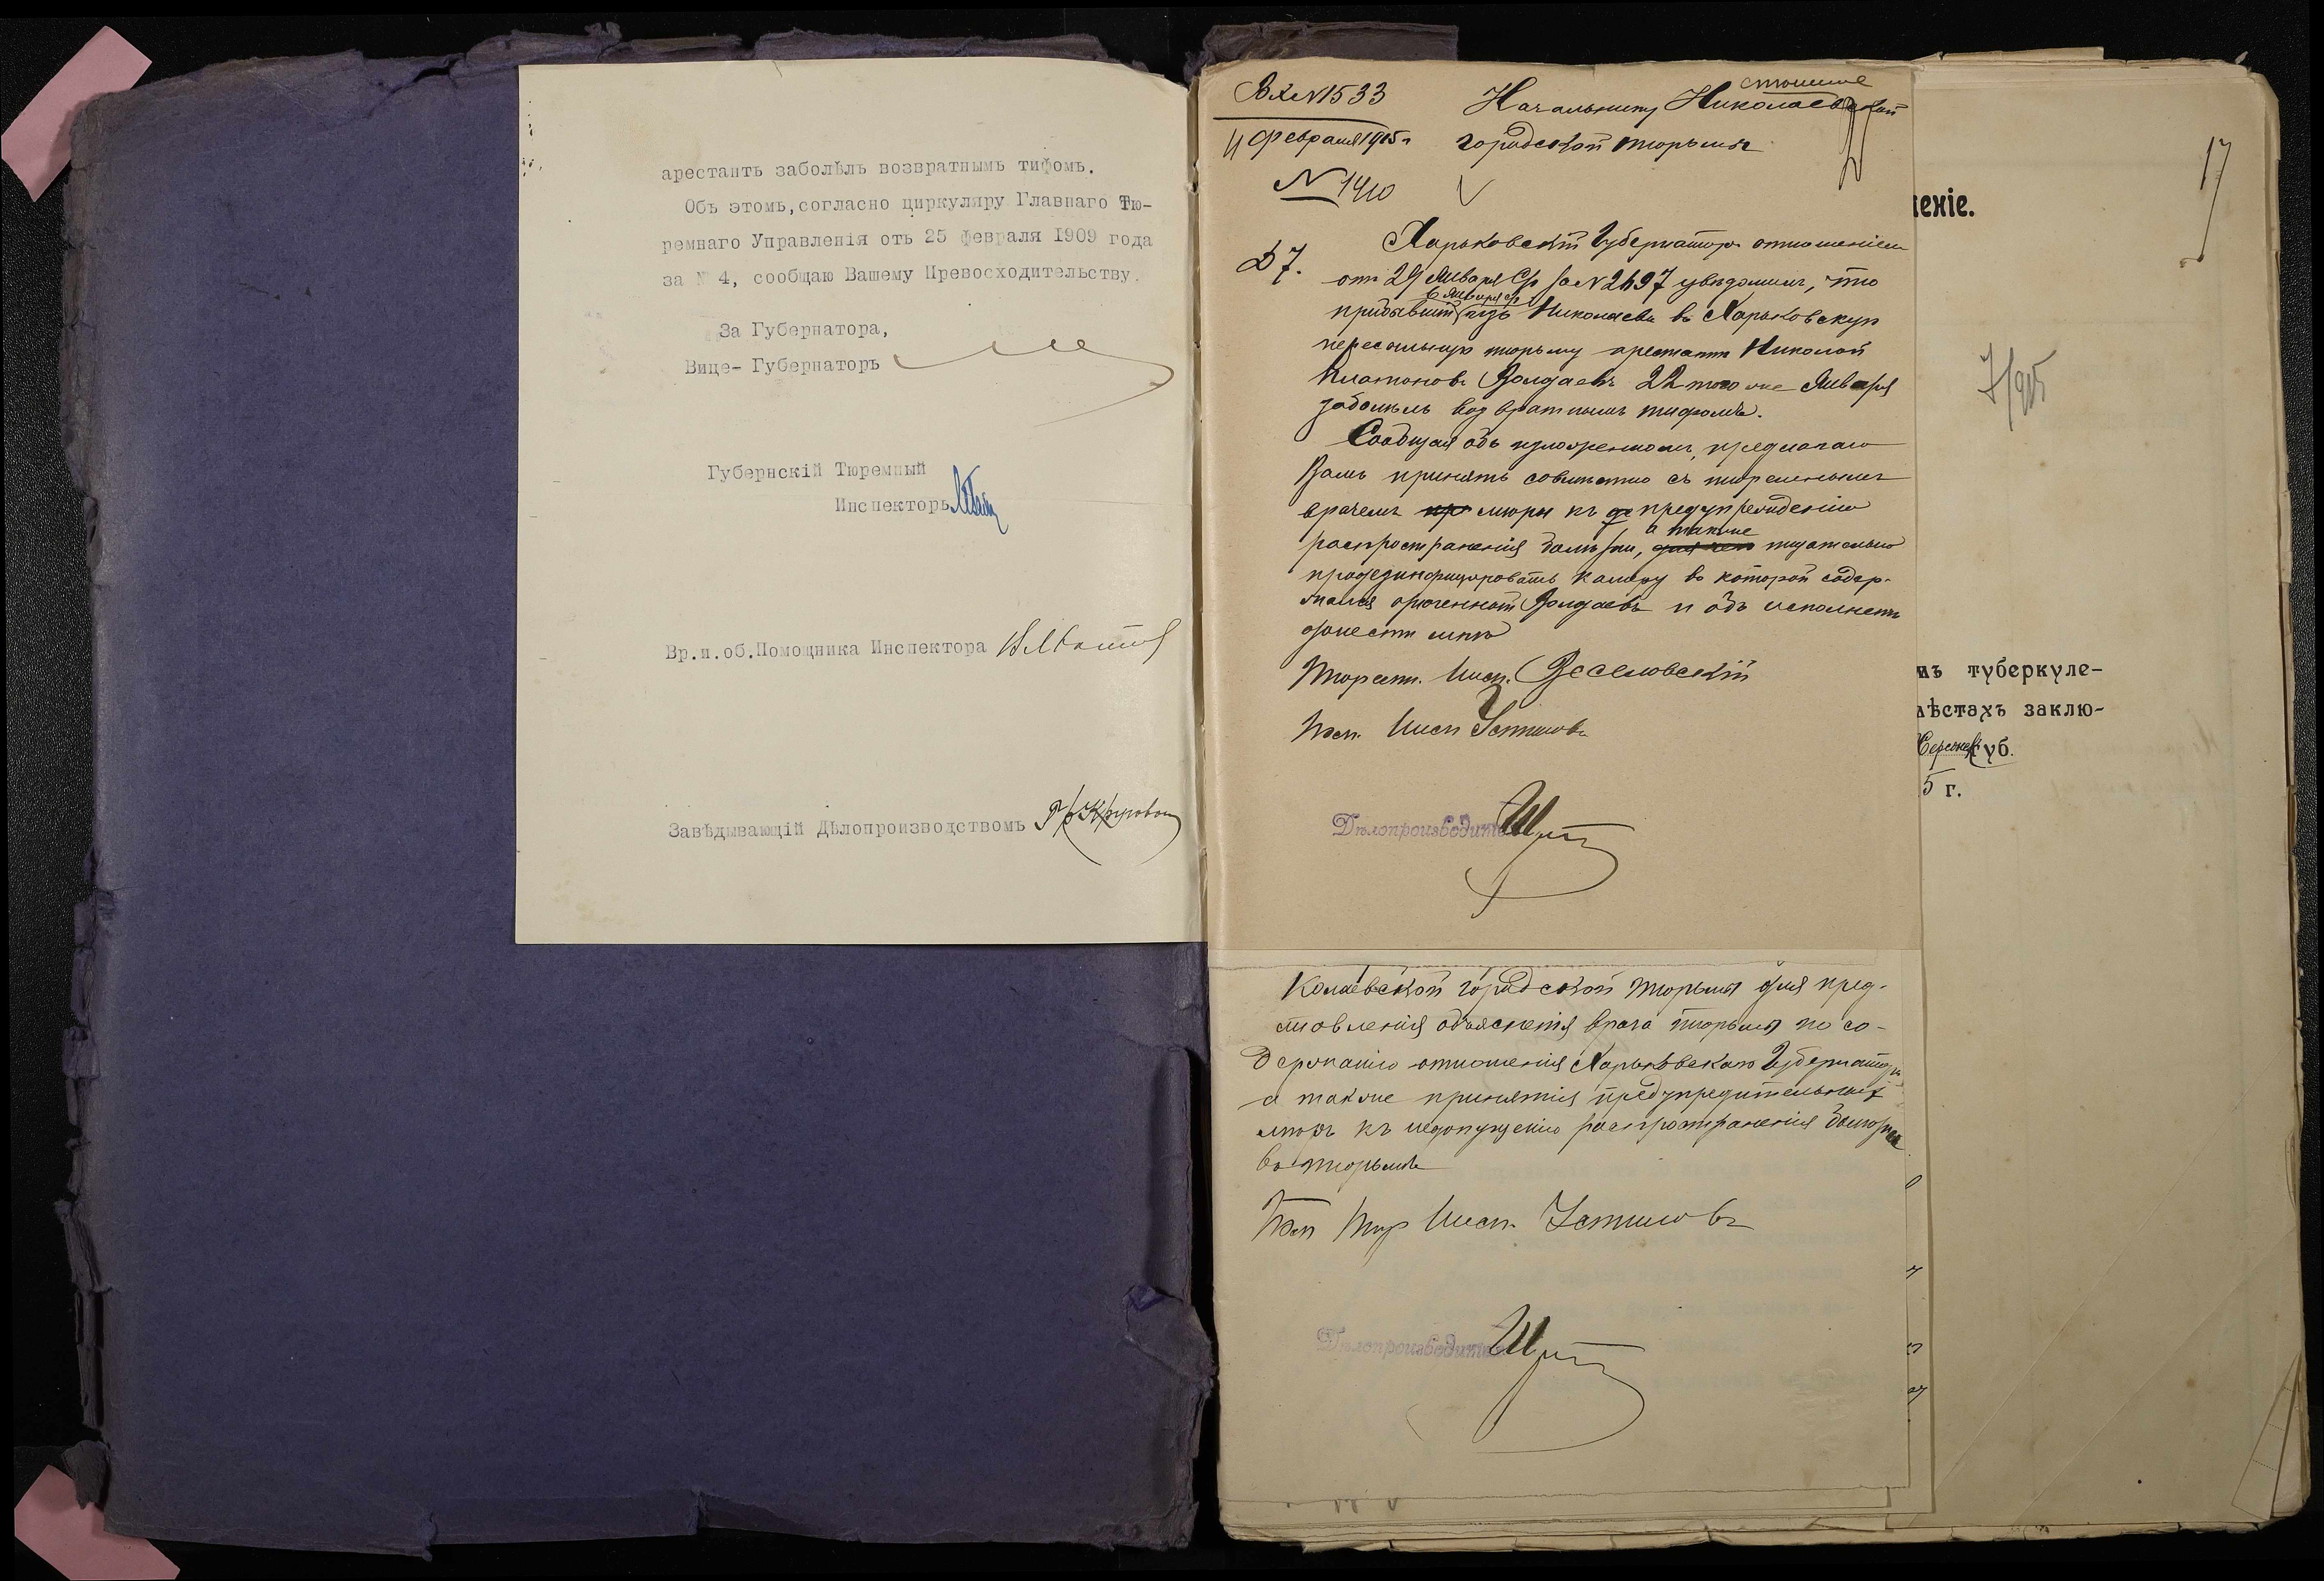 арестантъ заболѣлъ возвратнымъ тифомъ.
Объ этомъ, согласно циркуляру Главнаго Тю-
ремнаго Управленія отъ 25 февраля 1909 года
за № 4, сообщаю Вашему Превосходительству.
За Губернатора,
Вице- Губернаторъ
Губернскій Тюремный
Инспекторъ
Вр.и.об.Помощника Инспектора
Завѣдывающій Дѣлопроизводствомъ
Вх №1533
Начальнику Николаевской
4 февраля 1915 г
городской тюрьмы
№ 1410
Харьковскій Губернаторъ отношеніем
37.
отъ 29 Января с/г за № 2497 увѣдомилъ, что
6 Января с/г
прибывшій изъ Николаева въ Харьковскую
пересыльную тюрьму арестантъ Николай
Платоновъ 22 того же Января
заболѣлъ возвратнымъ тифомъ.
Сообщая объ изложенномъ, предлагаю
Вамъ принять совмѣстно съ тюремнымъ
врачемъ мѣры къ предупрежденію
а также
распространенія болѣзни, тщательно
продезинфицировать камеру въ которой содер-
жался и объ исполнен
донести мнѣ
Тюремн. Инсп. Веселовскій
Пом. Инсп Устимовъ
Дѣлопроизводитель
колаевской городской тюрьмы для пред-
ставленія объясненія врача тюрьмы по со-
держанію отношенія Харьковскаго Губернатора
а также принятія предупредительныхъ
мѣръ къ недопущенію распространенія болѣзни
въ тюрьмѣ
Пом Тюр Инсп. Устимовъ
Дѣлопроизводитель
17
леніе.
7/915
мъ туберкуле-
мѣстахъ заклю-
Херсонск губ.
5 г.